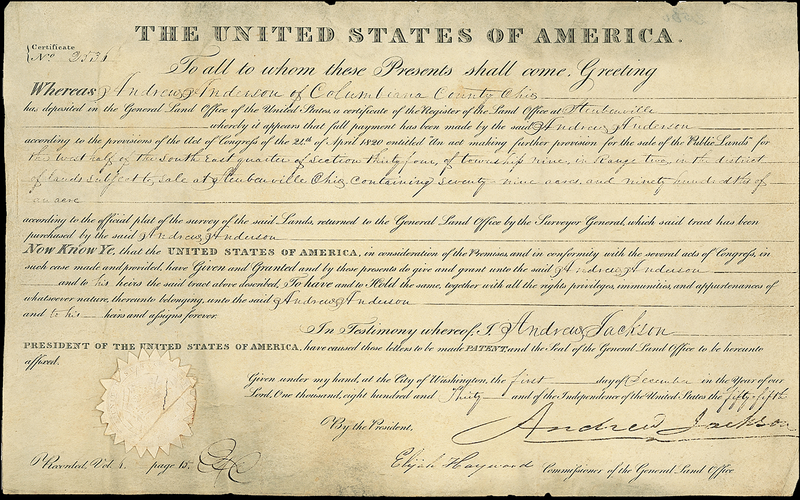 THE UNITED STATES OF AMERICA.
Certificate
No. 2531
To all to whom these Presents shall come, Greeting
Whereas Andrew Anderson of Columbiana County Ohio
has deposited in the General Land Office of the United States, a certificate of the Register of the Land Office at Steubenville
whereby it appears that full payment has been made by the said Andrew Anderson
according to the provisions of the Act of Congress of the 24th of April 1820 entitled "An act making further provision for the sale of the Public Lands" for
the West half of the South East quarter of Section thirty four, of township nine, in Range two, in the district
of lands subject to sale at Steubenville Ohio, containing seventy nine acres, and ninety hundredths of
an acre
according to the official plat of the survey of the said Lands, returned to the General Land Office by the Surveyor General, which said tract has been
purchased by the said Andrew Anderson
Now Know Ye, that the UNITED STATES OF AMERICA, in consideration of the Promises, and in conformity with the several acts of Congress, in
such case made and provided, have Given and Granted and by these presents do give and grant unto the said Andrew Anderson
and to his heirs the said tract above described, To have and to Hold the same, together with all the rights privileges, immunities, and appurtenances of
whatsoever nature, thereunto belonging, unto the said Andrew Anderson
and to his heirs and assigns forever.
In Testimony whereof, I, Andrew Jackson
PRESIDENT OF THE UNITED STATES OF AMERICA, have caused these letters to be made PATENT, and the Seal of the General Land Office to be hereunto
affixed.
Given under my hand, at the City of Washington, the first day of December in the Year of our
Lord, One thousand, eight hundred and Thirty and of the Independence of the United States the fifty fifth
By the President,
Andrew Jackson
Recorded, Vol. 1. page 15.
Elijah Hayward Commissioner of the General Land Office